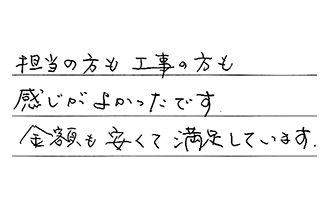 担当の方も 工事の方も
感じがよかったです.
金額も安くて満足しています.